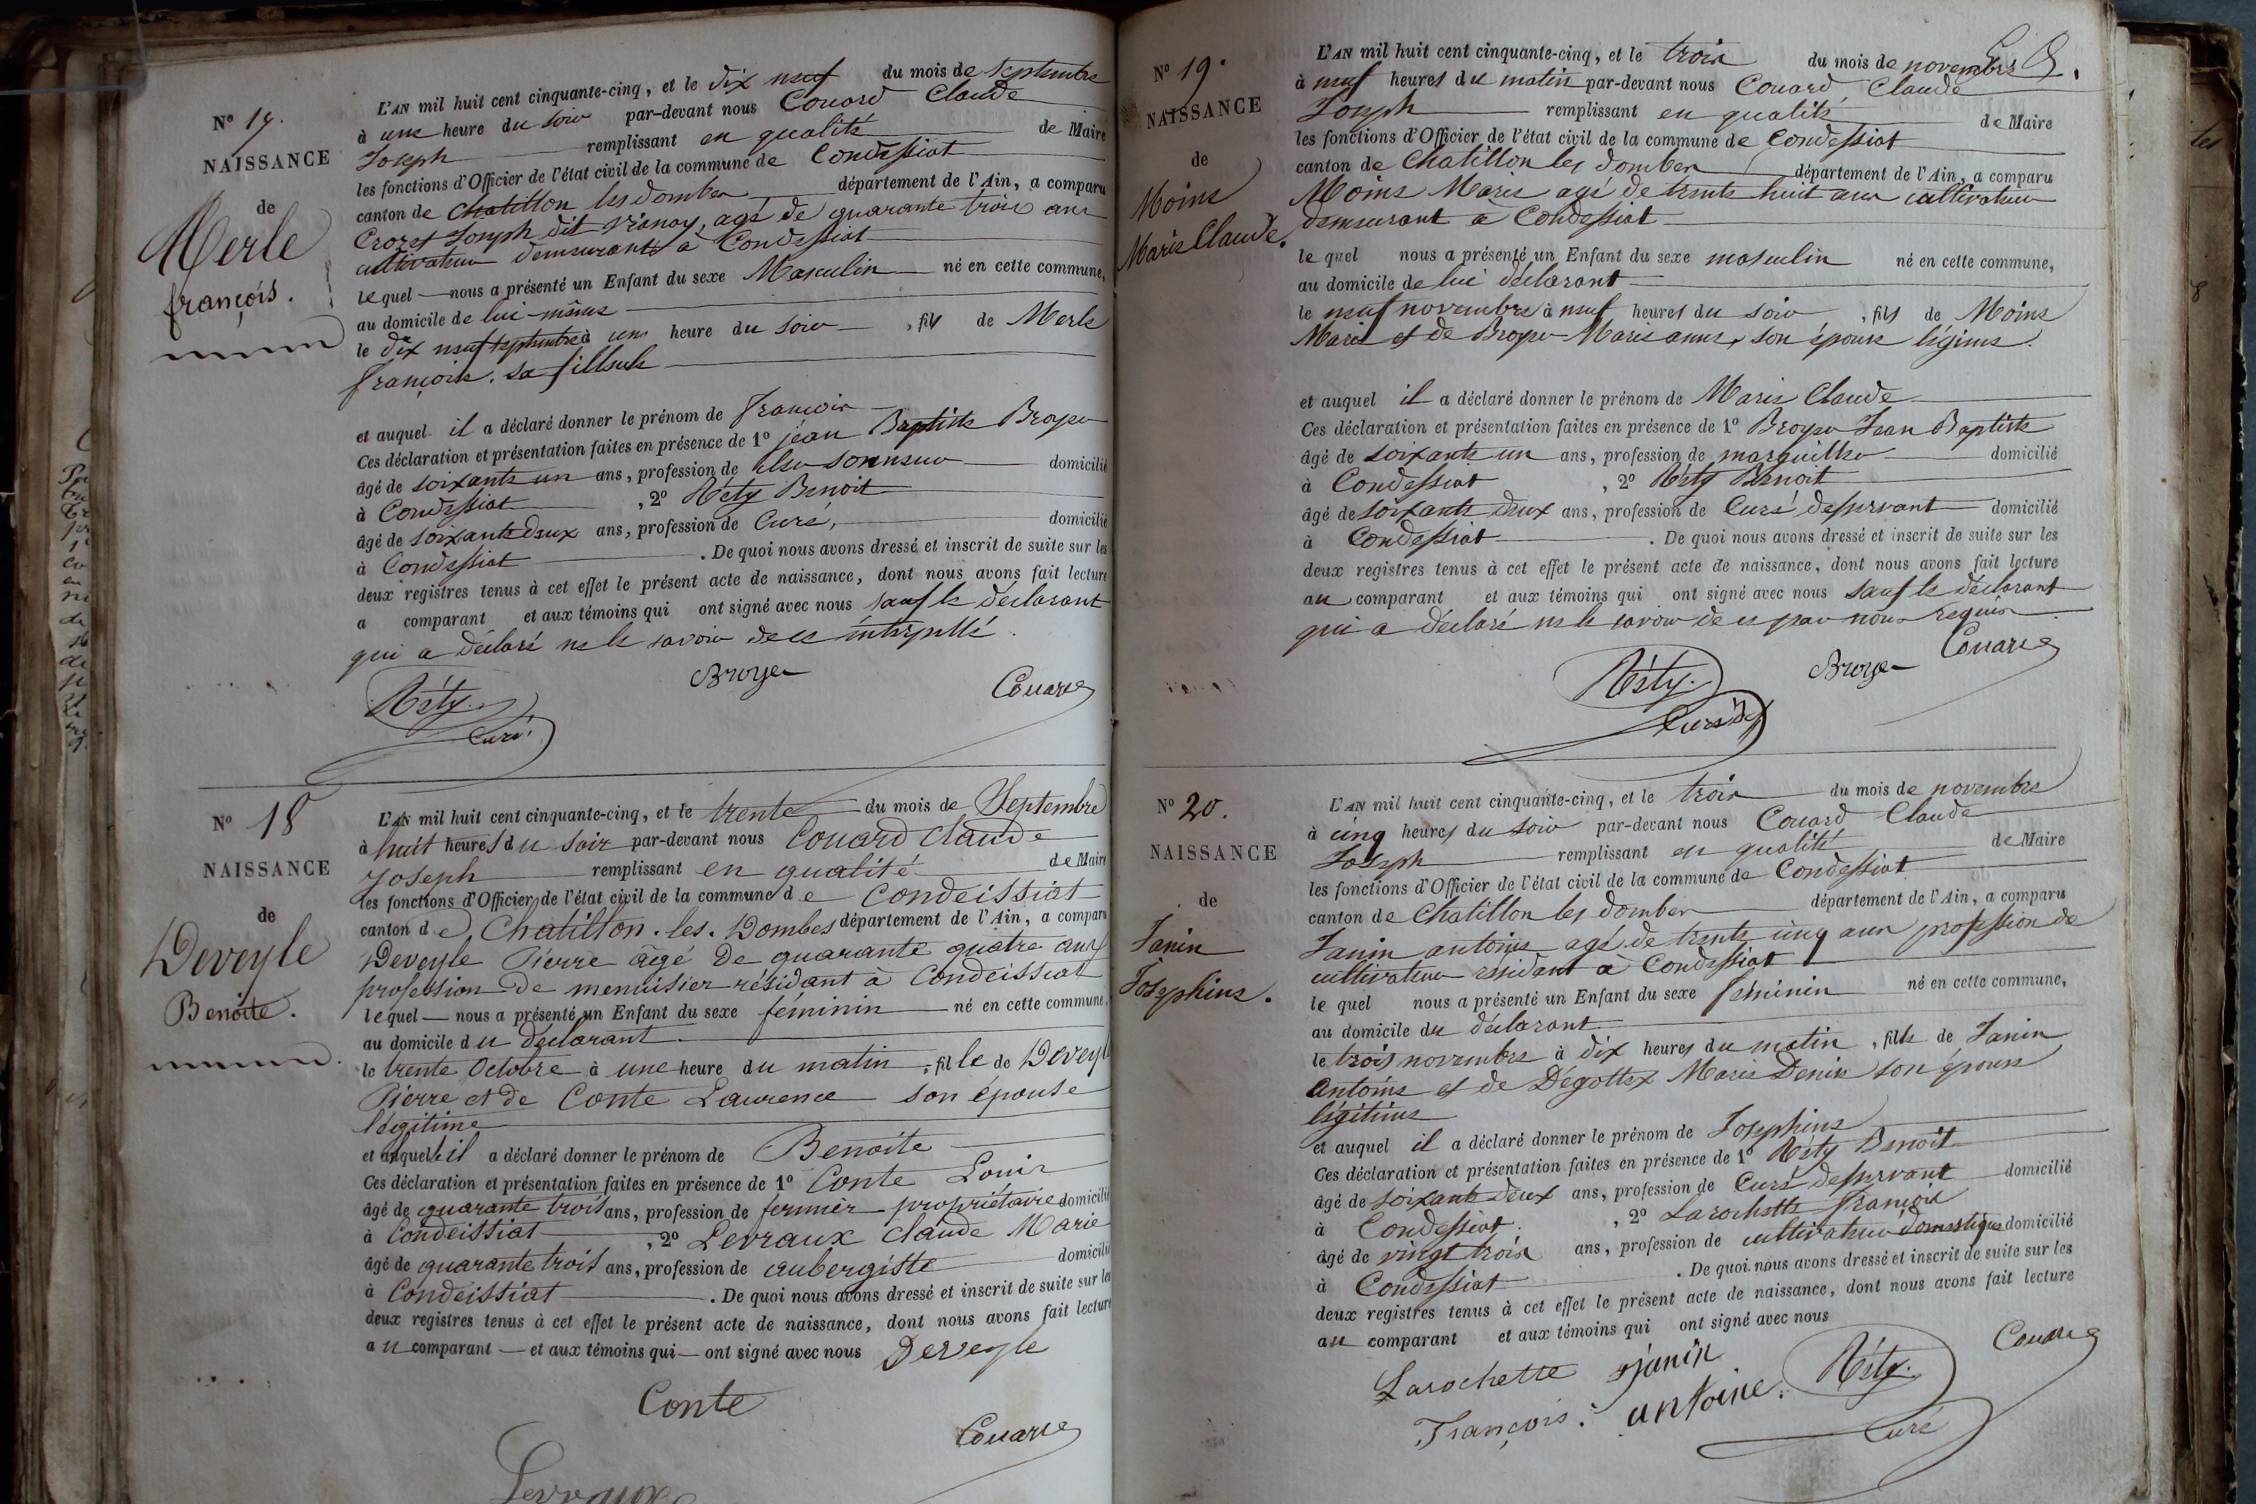 N° 17.
NAISSANCE
de
Merle
françois.
L'AN mil huit cent cinquante-cinq, et le dix neuf du mois de septembre
à une heure du soir par-devant nous Couard Claude
Joseph remplissant en qualité de Maire
les fonctions d'Officier de l'état civil de la commune de Condessiat
canton de Chatillon les dombes département de l'Ain, a comparu
Crozet Joseph dit vianay, agé de quarante trois ans
cultivateur demeurant à Condessiat
lequel nous a présenté un Enfant du sexe Masculin né en cette commune,
au domicile de lui-même
le dix neuf septembre à une heure du soir, fils de Merle
françoise. sa filleule
et auquel il a déclaré donner le prénom de françois
Ces déclaration et présentation faites en présence de 1° jean Baptiste Broyer
âgé de soixante un ans, profession de sonneur domicilié
à Condessiat, 2° Néty Benoit
âgé de soixante deux ans, profession de Curé, domicilié
à Condessiat. De quoi nous avons dressé et inscrit de suite sur les
deux registres tenus à cet effet le présent acte de naissance, dont nous avons fait lecture
a comparant et aux témoins qui ont signé avec nous sauf le déclarant
qui a déclaré ne le savoir de ce interpellé.
Broyer
Néty. Couard
Curé
N° 18
NAISSANCE
de
Deveyle
Benoite.
L'AN mil huit cent cinquante-cinq, et le trente du mois de Septembre
à huit heures du soir par-devant nous Couard Claude
Joseph remplissant en qualité de Maire
les fonctions d'Officier de l'état civil de la commune de Condeissiat
canton de Chatillon. les. Dombes département de l'Ain, a comparu
Deveyle Pierre âgé de quarante quatre ans
profession de menuisier résidant à Condeissiat
lequel nous a présenté un Enfant du sexe féminin né en cette commune,
au domicile du déclarant.
le trente Octobre à une heure du matin, fille de Deveyle
Pierre et de Conte Laurence son épouse
légitime
et auquel il a déclaré donner le prénom de Benoite
Ces déclaration et présentation faites en présence de 1° Conte Louis
âgé de quarante trois ans, profession de fermier propriétaire domicilié
à Condeissiat, 2° Levraux Claude Marie
âgé de quarante trois ans, profession de aubergiste domicilié
à Condeissiat. De quoi nous avons dressé et inscrit de suite sur les
deux registres tenus à cet effet le présent acte de naissance, dont nous avons fait lecture
au comparant et aux témoins qui ont signé avec nous Deveyle
Conte
Couard
Levraux
N° 19.
NAISSANCE
de
Moins
Marie Claude.
L'AN mil huit cent cinquante-cinq, et le trois du mois de novembre
à neuf heures du matin par-devant nous Couard Claude
Joseph remplissant en qualité de Maire
les fonctions d'Officier de l'état civil de la commune de Condessiat
canton de Chatillon les dombes département de l'Ain, a comparu
Moins Marie agé de trente huit ans cultivateur
demeurant à Condessiat
le quel nous a présenté un Enfant du sexe masculin né en cette commune,
au domicile de lui déclarant
le neuf novembre à neuf heures du soir, fils de Moins
Marie et de Broyer Marie anne, son épouse légime.
et auquel il a déclaré donner le prénom de Marie Claude
Ces déclaration et présentation faites en présence de 1° Broyer Jean Baptiste
âgé de soixante un ans, profession de marguillier domicilié
à Condessiat, 2° Néty Benoit
âgé de soixante deux ans, profession de Curé desservant domicilié
à Condessiat. De quoi nous avons dressé et inscrit de suite sur les
deux registres tenus à cet effet le présent acte de naissance, dont nous avons fait lecture
au comparant et aux témoins qui ont signé avec nous sauf le déclarant
qui a déclaré ne le savoir de ce par nous requis
Néty. Broyer Couard
Curé
N° 20.
NAISSANCE
de
Janin
Josephine.
L'AN mil huit cent cinquante-cinq, et le trois du mois de novembre
à cinq heures du soir par-devant nous Couard Claude
Joseph remplissant en qualité de Maire
les fonctions d'Officier de l'état civil de la commune de Condessiat
canton de Chatillon les dombes département de l'Ain, a comparu
Janin antoine agé de trente cinq ans profession de
cultivateur résidant à Condessiat
le quel nous a présenté un Enfant du sexe féminin né en cette commune,
au domicile du déclarant.
le trois novembre à dix heures du matin, fille de Janin
antoine et de Dégottex Marie Denise son épouse
légitime
et auquel il a déclaré donner le prénom de Josephine
Ces déclaration et présentation faites en présence de 1° Néty Benoit
âgé de soixante deux ans, profession de Curé desservant domicilié
à Condessiat., 2° Larochette François
âgé de vingt trois ans, profession de cultivateur domestique domicilié
à Condessiat. De quoi nous avons dressé et inscrit de suite sur les
deux registres tenus à cet effet le présent acte de naissance, dont nous avons fait lecture
au comparant et aux témoins qui ont signé avec nous
Larochette janin Néty. Couard
François. antoine.
Curé